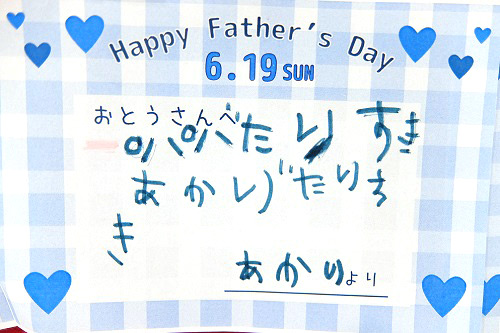 Happy Father's Day
6.19 SUN
おとうさんへ
パパだりすき
あかりだりち
き
あかりより